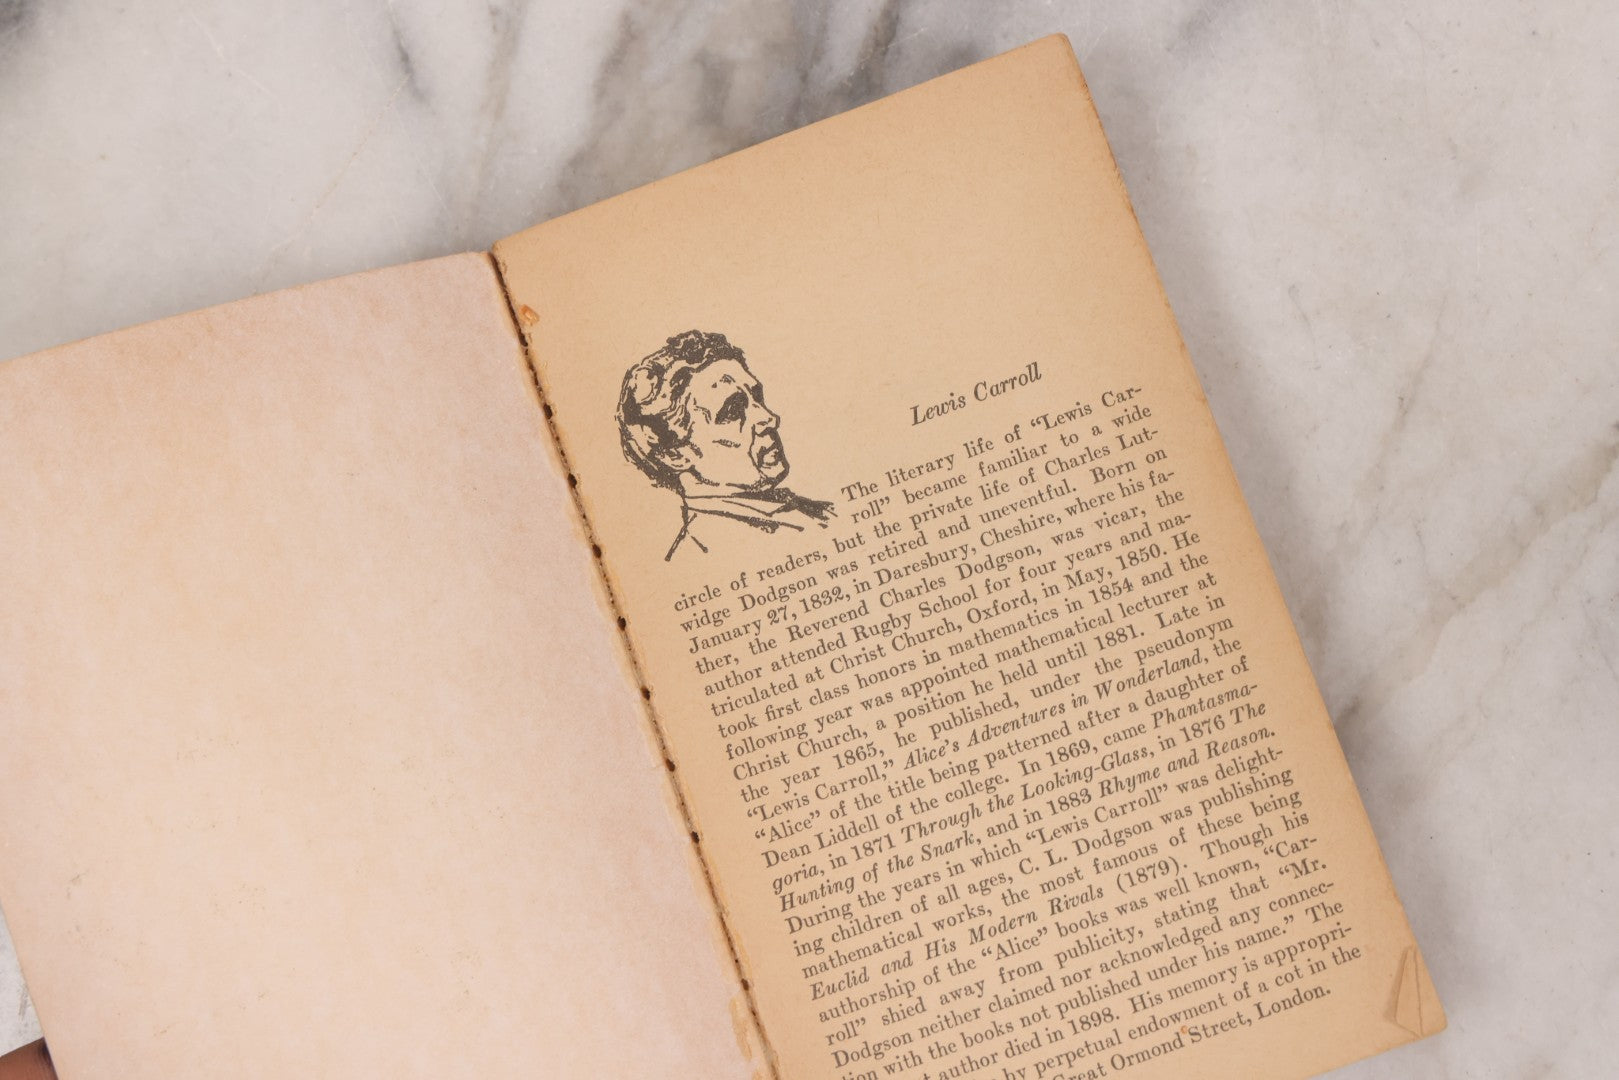 Lewis Carroll
The literary life of “Lewis Car-
roll” became familiar to a wide
circle of readers, but the private life of Charles Lut-
widge Dodgson was retired and uneventful. Born on
January 27, 1832, in Daresbury, Cheshire, where his fa-
ther, the Reverend Charles Dodgson, was vicar, the
author attended Rugby School for four years and ma-
triculated at Christ Church, Oxford, in May, 1850. He
took first class honors in mathematics in 1854 and the
following year was appointed mathematical lecturer at
Christ Church, a position he held until 1881. Late in
the year 1865, he published, under the pseudonym
“Lewis Carroll,” Alice's Adventures in Wonderland, the
“Alice” of the title being patterned after a daughter of
Dean Liddell of the college. In 1869, came Phantasma-
goria, in 1871 Through the Looking-Glass, in 1876 The
Hunting of the Snark, and in 1883 Rhyme and Reason.
During the years in which “Lewis Carroll” was delight-
ing children of all ages, C. L. Dodgson was publishing
mathematical works, the most famous of these being
Euclid and His Modern Rivals (1879). Though his
authorship of the “Alice” books was well known, “Car-
roll” shied away from publicity, stating that “Mr.
Dodgson neither claimed nor acknowledged any connec-
tion with the books not published under his name.” The
author died in 1898. His memory is appropri-
by perpetual endowment of a cot in the
Great Ormond Street, London.